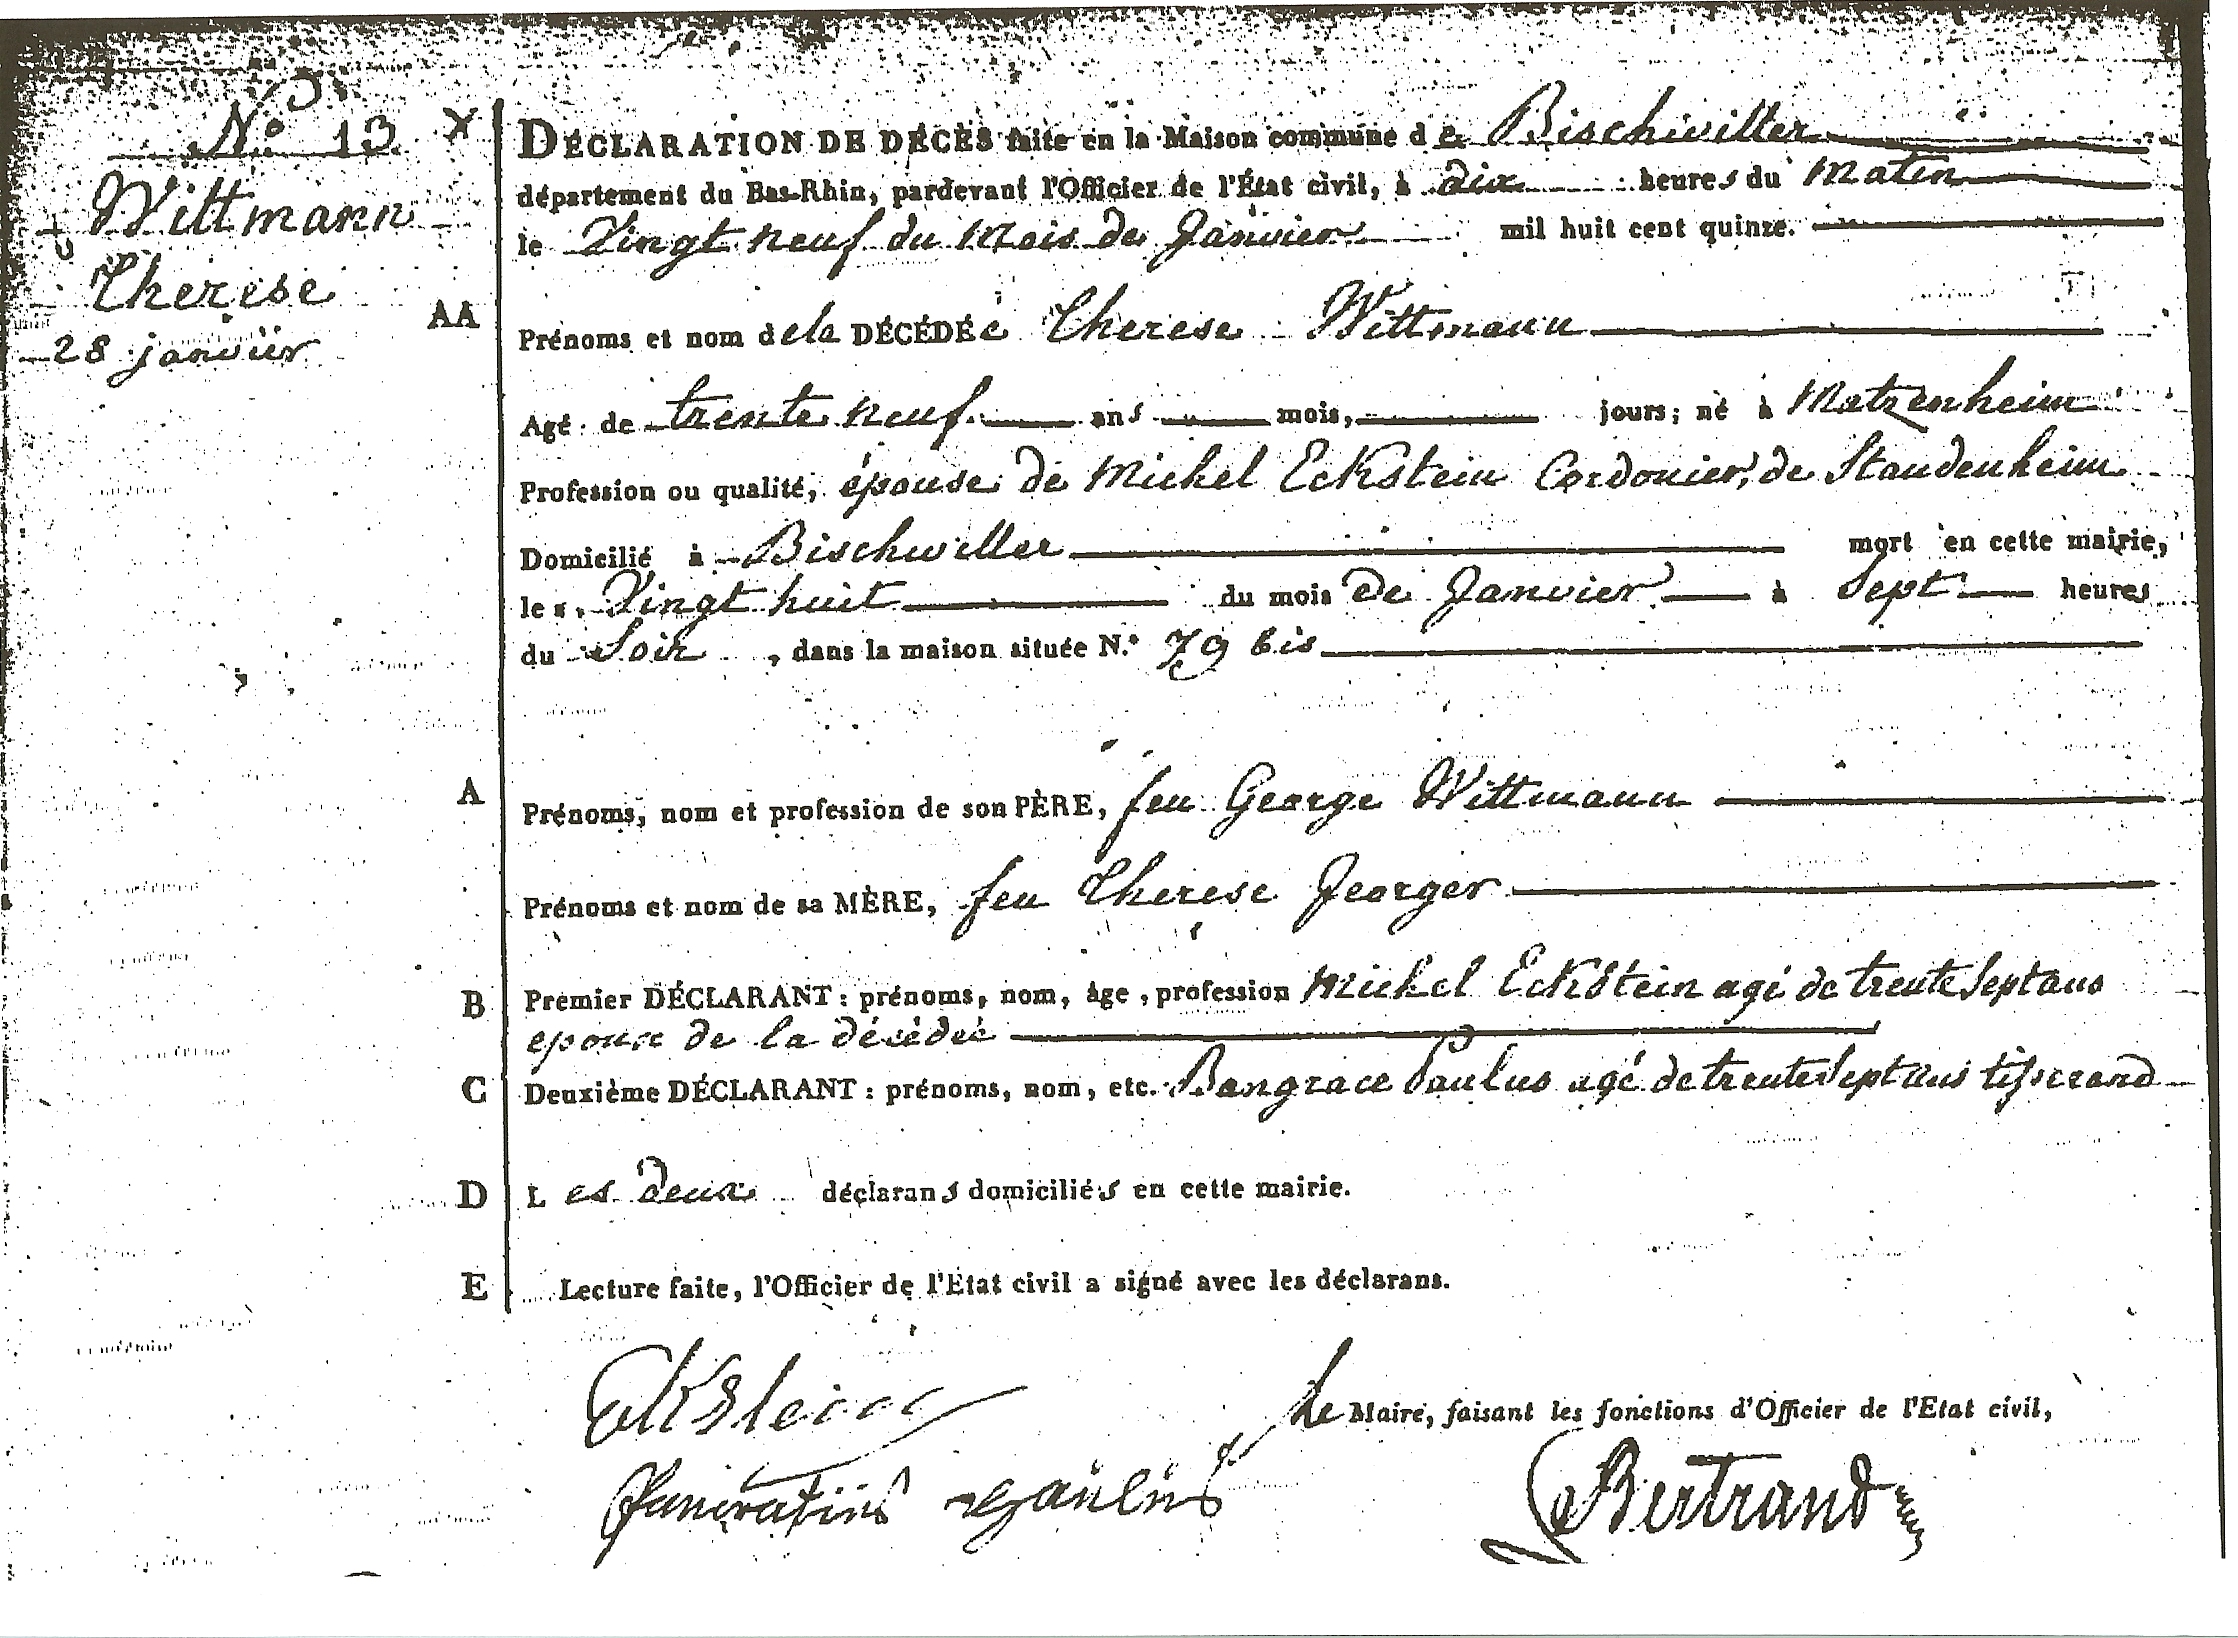 N.º 13. X
Wittmann
Therese
28 janvier
DÉCLARATION DE DÉCÈS faite en la Maison commune de Bischwiller
département du Bas-Rhin, pardevant l'Officier de l'État civil, à dix heures du Matin
le Vingt neuf du Mois de Janvier mil huit cent quinze.
AA Prénoms et nom de la DÉCÉDÉe Therese Wittmann
Agé de trente neuf ans mois, jours; né à Matzenheim
Profession ou qualité, épouse de Michel Eckstein Cordonier, de Staudenheim
Domicilié à Bischwiller mort en cette mairie,
le Vingt huit du mois de Janvier à Sept heures
du Soir, dans la maison située N.º 79 bis
A Prénoms, nom et profession de son PÈRE, feu George Wittmann
Prénoms et nom de sa MÈRE, feu Therese Georger
B Premier DÉCLARANT : prénoms, nom, âge, profession Michel Eckstein agé de trente Sept ans
epoux de la décédée
C Deuxième DÉCLARANT : prénoms, nom, etc. Bangrace Paulus agé de trente Sept ans tisserand
D Les deux déclarans domiciliés en cette mairie.
E Lecture faite, l'Officier de l'État civil a signé avec les déclarans.
Ekstein
Le Maire, faisant les fonctions d'Officier de l'Etat civil,
Pancratius Paulus
Bertrand